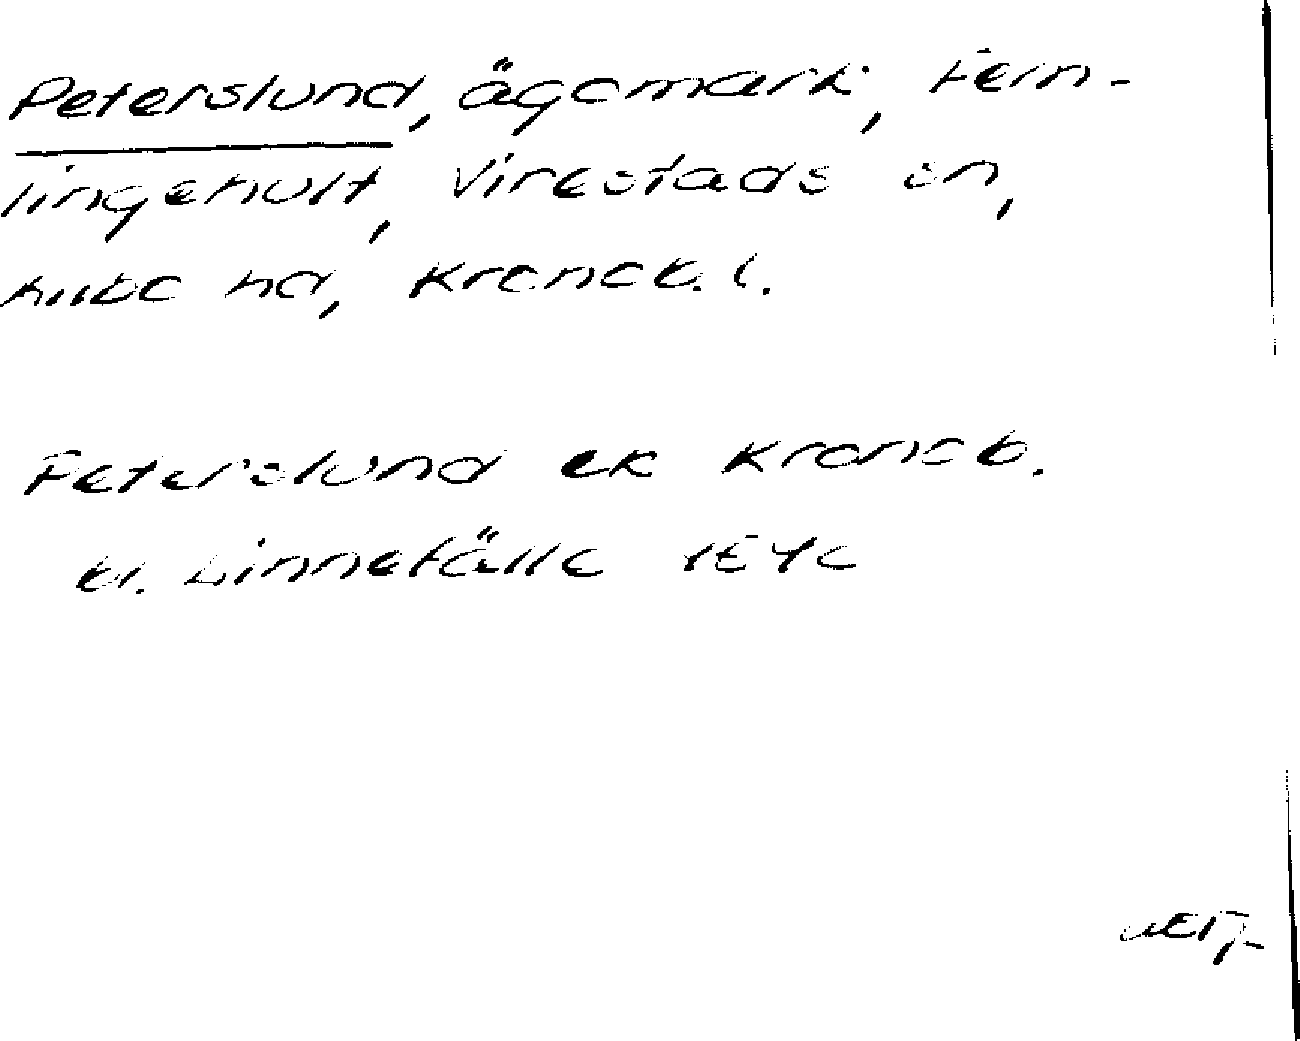 Peterslund, ägomark, Fem-
lingehult, Virestads sn,
Allbo hd, Kronob. l.
Peterslund ek Kronob.
bl. Linnefälle 1940